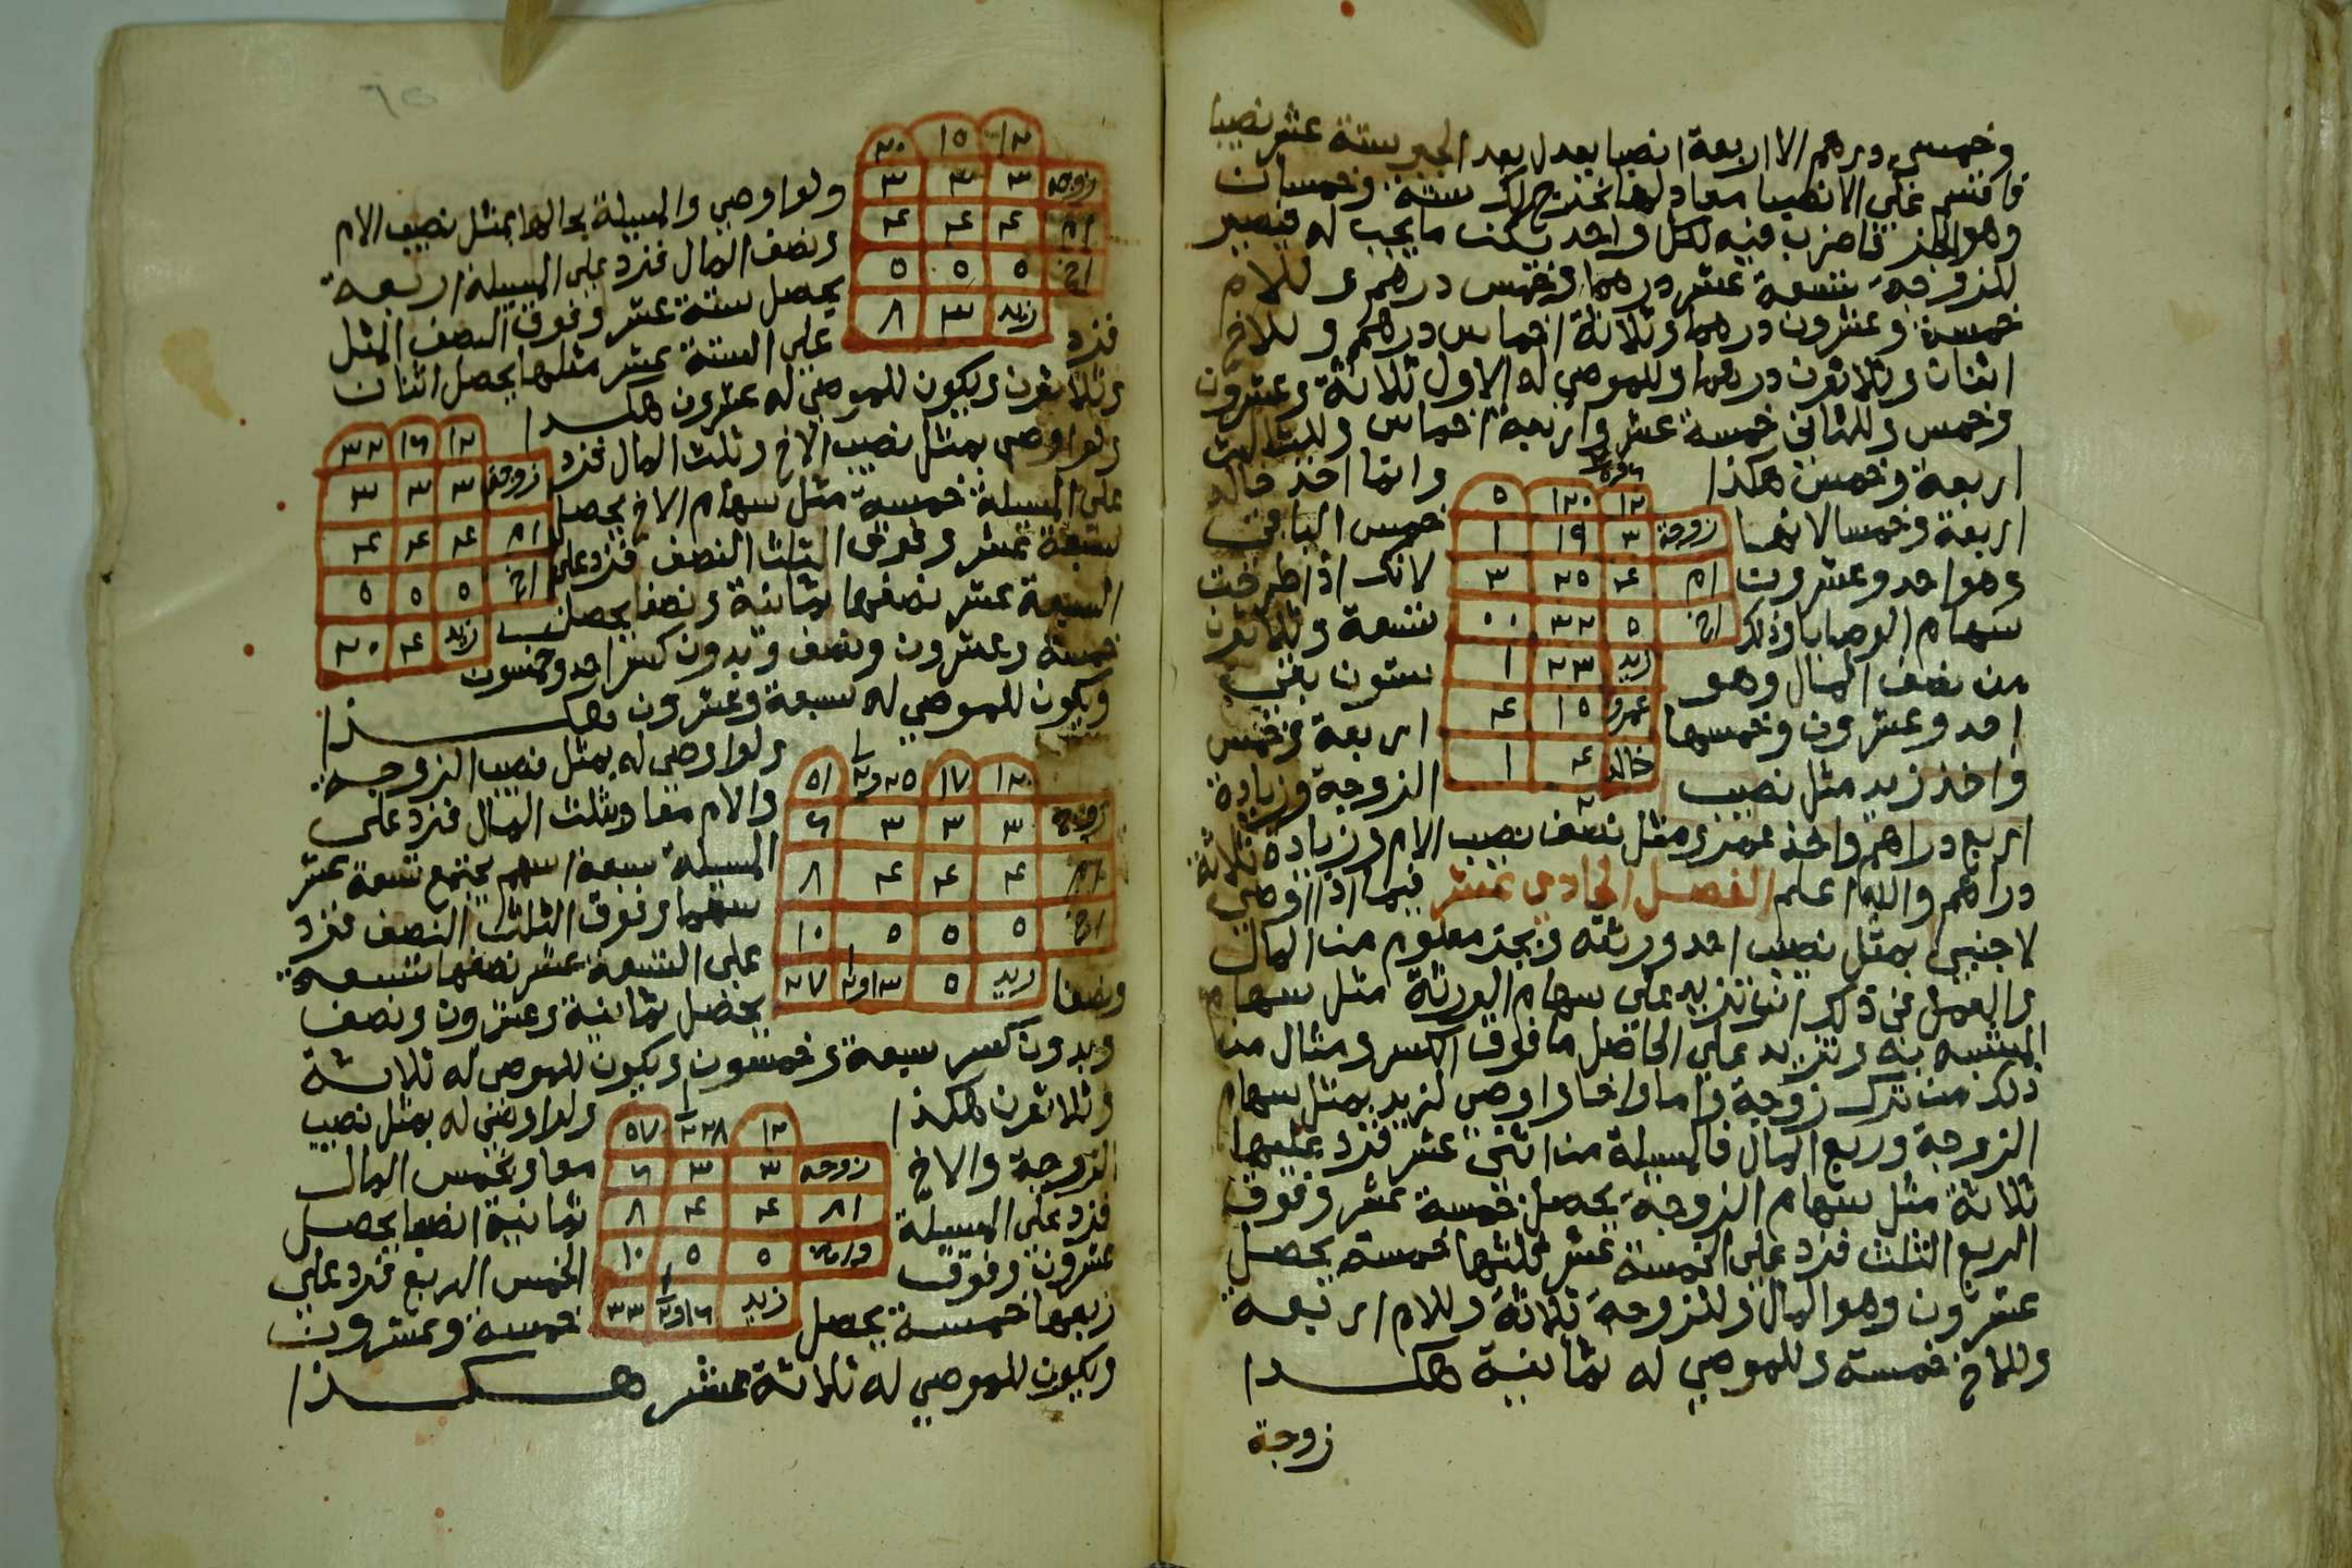 وخمس درهم الا اربعة انصبا يعدل بعد الجبر ستة عشر نصيبا
فاقسم علي الانصبا معادلها يخرج لك ستة وخمسان
وهو الجذر فاضرب فيه لكل واحد بكت ما يجب له فيصير
للزوجة تسعة عشر درهما وخمس درهم وللام
خمسة وعشرون درهما وثلاثة اخماس درهم وللاخ
اثنان وثلاثون درهما وللموصي له الاول ثلاثة وعشرون
وخمس وللثاني خمسة عشر واربعة اخماس وللثالث
اربعة وخمس هكذا وانما اخذ خالد
١٢ ١٢٠ ٥
زوجة ٣ ١٩ ١
ام ٤ ٢٥ ٣
اخ ٥ ٣٢ ٠٠
زيد ٢٣ ١
عمرو ١٥ ٤
خالد ٤ ١
اربعة وخمسا لانها خمس الباقي
وهو احد وعشرون لانك اذا طرحت
سهام الوصايا وذلك تسعة وثلاثون
من نصف المال وهو ستون بقي
احد وعشرون وخمسها اربعة وخمس
واخذ زيد مثل نصيب الزوجة وزيادة
اربع دراهم واخذ عمرو مثل نصف نصيب الام وزيادة ثلاثة
دراهم والله اعلم الفصل الحادي عشر فيما اذا اوصي
لاجنبي بمثل نصيب احد ورثته وبجزء معلوم من المال
والعمل في ذلك ان تزيد علي سهام الورثة مثل سهام
المشبه به وتزيد علي الحاصل ما فوق الكسر ومثال من
ذلك من ترك زوجة واما واخا واوصي لزيد بمثل سهام
الزوجة وربع المال فالمسيلة من اثني عشر فزد عليها
ثلاثة مثل سهام الزوجة يحصل خمسة عشر وفوق
الربع الثلث فزد علي الخمسة عشر ثلثها خمسة يحصل
عشرون وهو المال وللزوجة ثلاثة وللام اربعة
وللاخ خمسة وللموصي له ثمانية هكذا
زوجة
٦٥
١٢ ١٥ ٢٠
زوجه ٣ ٣ ٣
ام ٤ ٤ ٤
اخ ٥ ٥ ٥
زيد ٣ ٨
ولو اوصي والمسيلة بحالها بمثل نصيب الام
ونصف المال فزد علي المسيلة اربعة
يحصل ستة عشر وفوق النصف المثل
فزد علي الستة عشر مثلها يحصل اثنان
وثلاثون ويكون للموصي له عشرون هكذا
١٢ ١٦ ٣٢
زوجة ٣ ٣ ٣
ام ٤ ٤ ٤
اخ ٥ ٥ ٥
زيد ٤ ٢٠
ولو اوصي بمثل نصيب الاخ وثلث المال فزد
علي المسيلة خمسة مثل سهام الاخ يحصل
سبعة عشر وفوق الثلث النصف فزد علي
السبعة عشر نصفها ثمانية ونصفا يحصل
خمسة وعشرون ونصف وبدون كسر احد وخمسون
ويكون للموصي له سبعة وعشرون هكذا
١٢ ١٧ ٢٥ و٢/١ ٥١
زوجة ٣ ٣ ٣ ٦
ام ٤ ٤ ٤ ٨
اخ ٥ ٥ ٥ ١٠
زيد ٥ ١٣ و٢/١ ٢٧
ولو اوصي له بمثل نصيب الزوجة
والام معا وبثلث المال فزد علي
المسيلة سبعة اسهم يجتمع تسعة عشر
سهما وفوق الثلث النصف فزد
علي التسعة عشر نصفها تسعة
ونصفا يحصل ثمانية وعشرون ونصف
وبدون كسر سبعة وخمسون ويكون للموصي له ثلاثة
وثلاثون هكذا
١٢ ٢٨ ٢/١ ٥٧
زوجه ٣ ٣ ٦
ام ٤ ٤ ٨
٥ ٥ ١٠
زيد ١٦ و٢/١ ٣٣
ولو اوصي له بمثل نصيب
الزوجة والاخ معا وبخمس المال
فزد علي المسيلة ثمانية ايضا يحصل
عشرون وفوق الخمس الربع فزد علي
ربعها خمسة يحصل خمسة وعشرون
ويكون للموصي له ثلاثة عشر هكذا